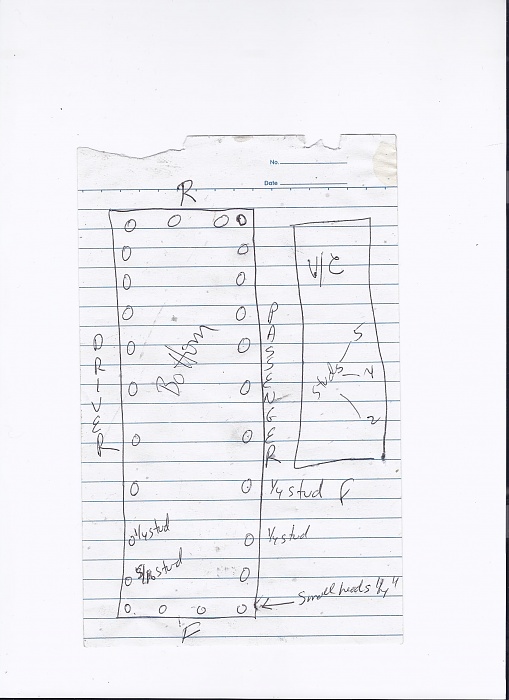 No.
Date
R
V/C
DRIVER
Bottom
PASSENGER
5
studs 4
2
1/4 stud F
1/4 stud
1/4 stud
5/16 stud
Small heads 1/4"
F